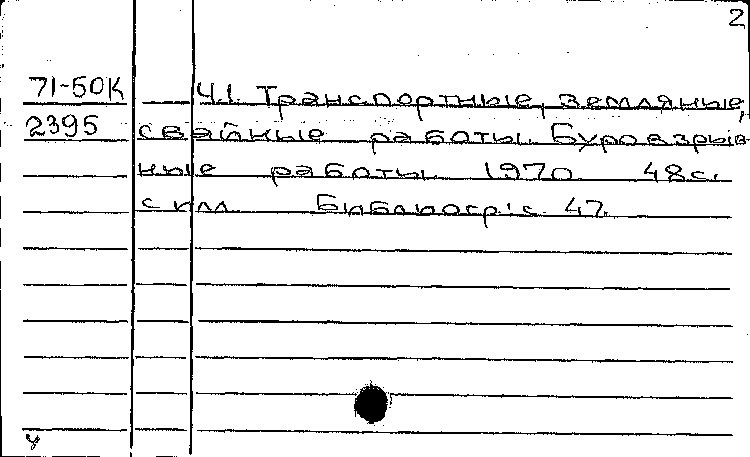 2
71-50К Ч.1. Транспортные, земляные,
2395 свайные работы. Буровзрыв
ные работы. 1970. 48с.
с илл. Библиогр: с. 47.
У